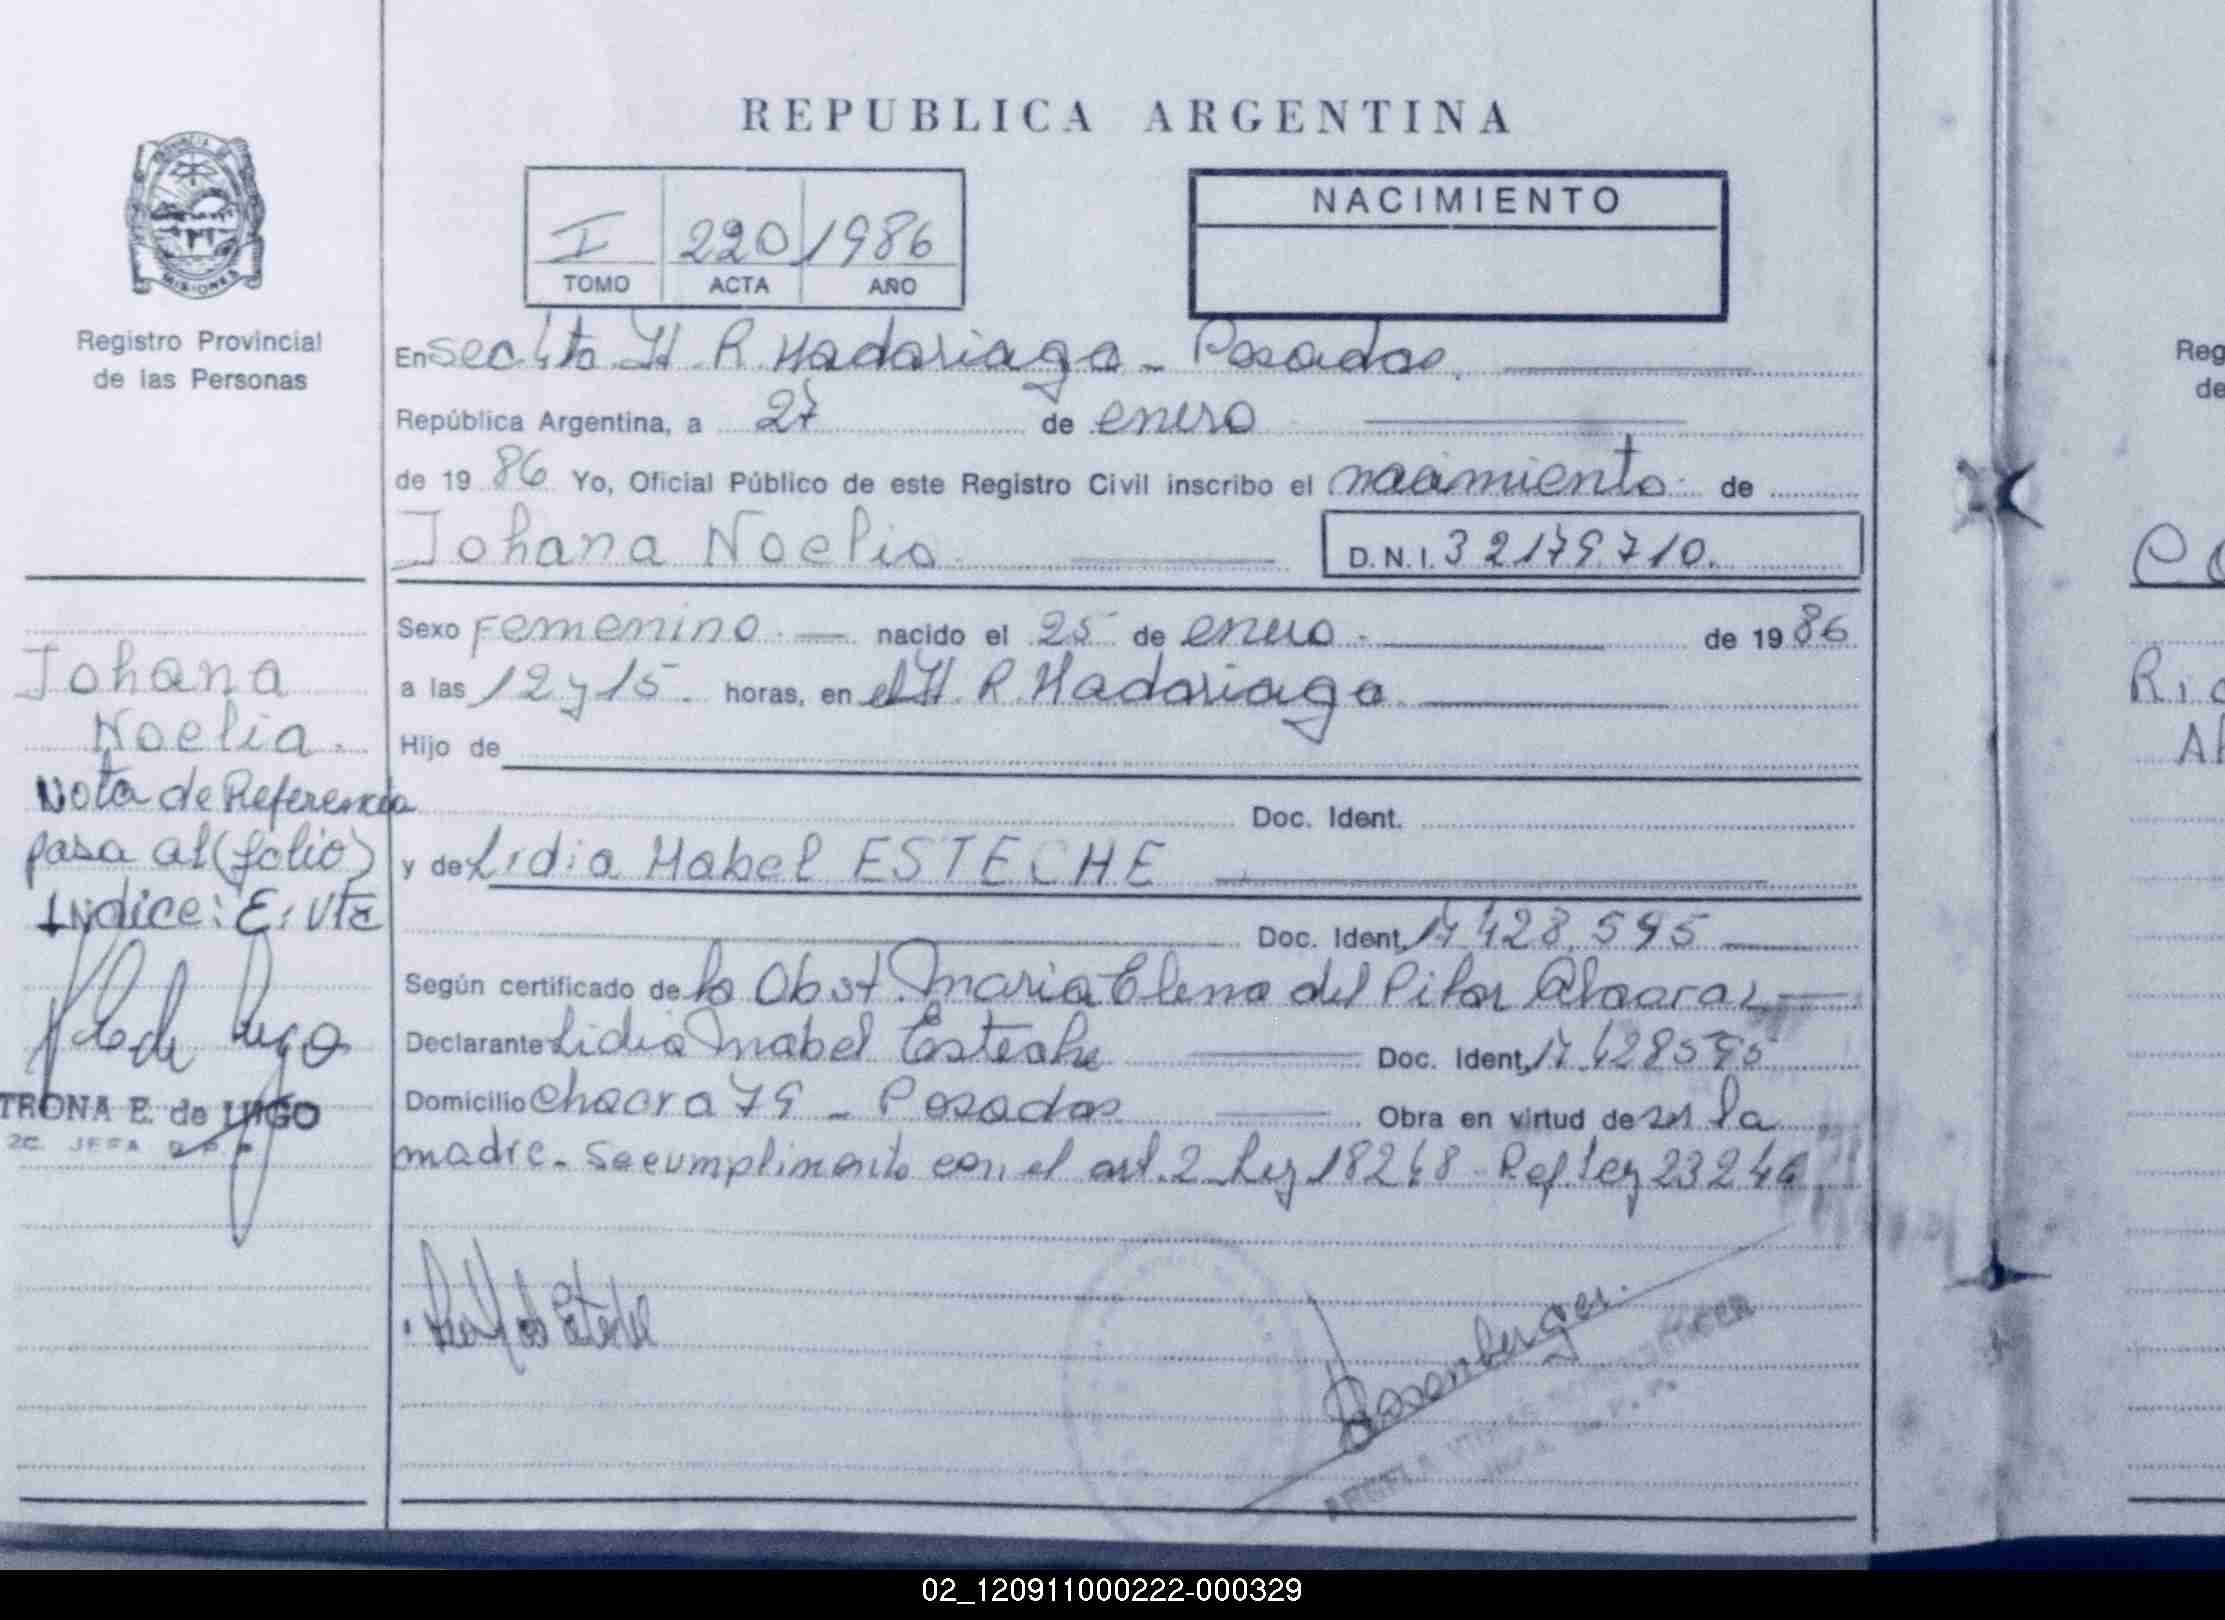 REPUBLICA ARGENTINA
PROVINCIA
MISIONES
Registro Provincial
de las Personas
I 220 1986
TOMO ACTA AÑO
NACIMIENTO
En H. R. Madariaga - Posadas.
República Argentina, a 27 de enero
de 1986 Yo, Oficial Público de este Registro Civil inscribo el nacimiento de
Johana Noelia D.N.I. 32179710.
Sexo Femenino. nacido el 25 de enero de 1986
a las 12 y 15. horas, en el H. R. Madariaga
Hijo de
Doc. Ident.
y de Lidia Mabel ESTECHE
Doc. Ident. 17.428.595
Según certificado de la Obst. Maria Elena del Pilar
Declarante Lidia Mabel Esteche Doc. Ident. 17.428595
Domicilio Chacra 79 - Posadas Obra en virtud de ser la
madre. Se cumplimento con el art. 2 Ley 18248 Ref Ley 23246
Johana
Noelia.
Nota de Referencia
pasa al (folio)
Indice: E. Vte
TRONA E. de LUGO
2C. JEFA
Rosemberger.
02_120911000222-000329
Reg
de